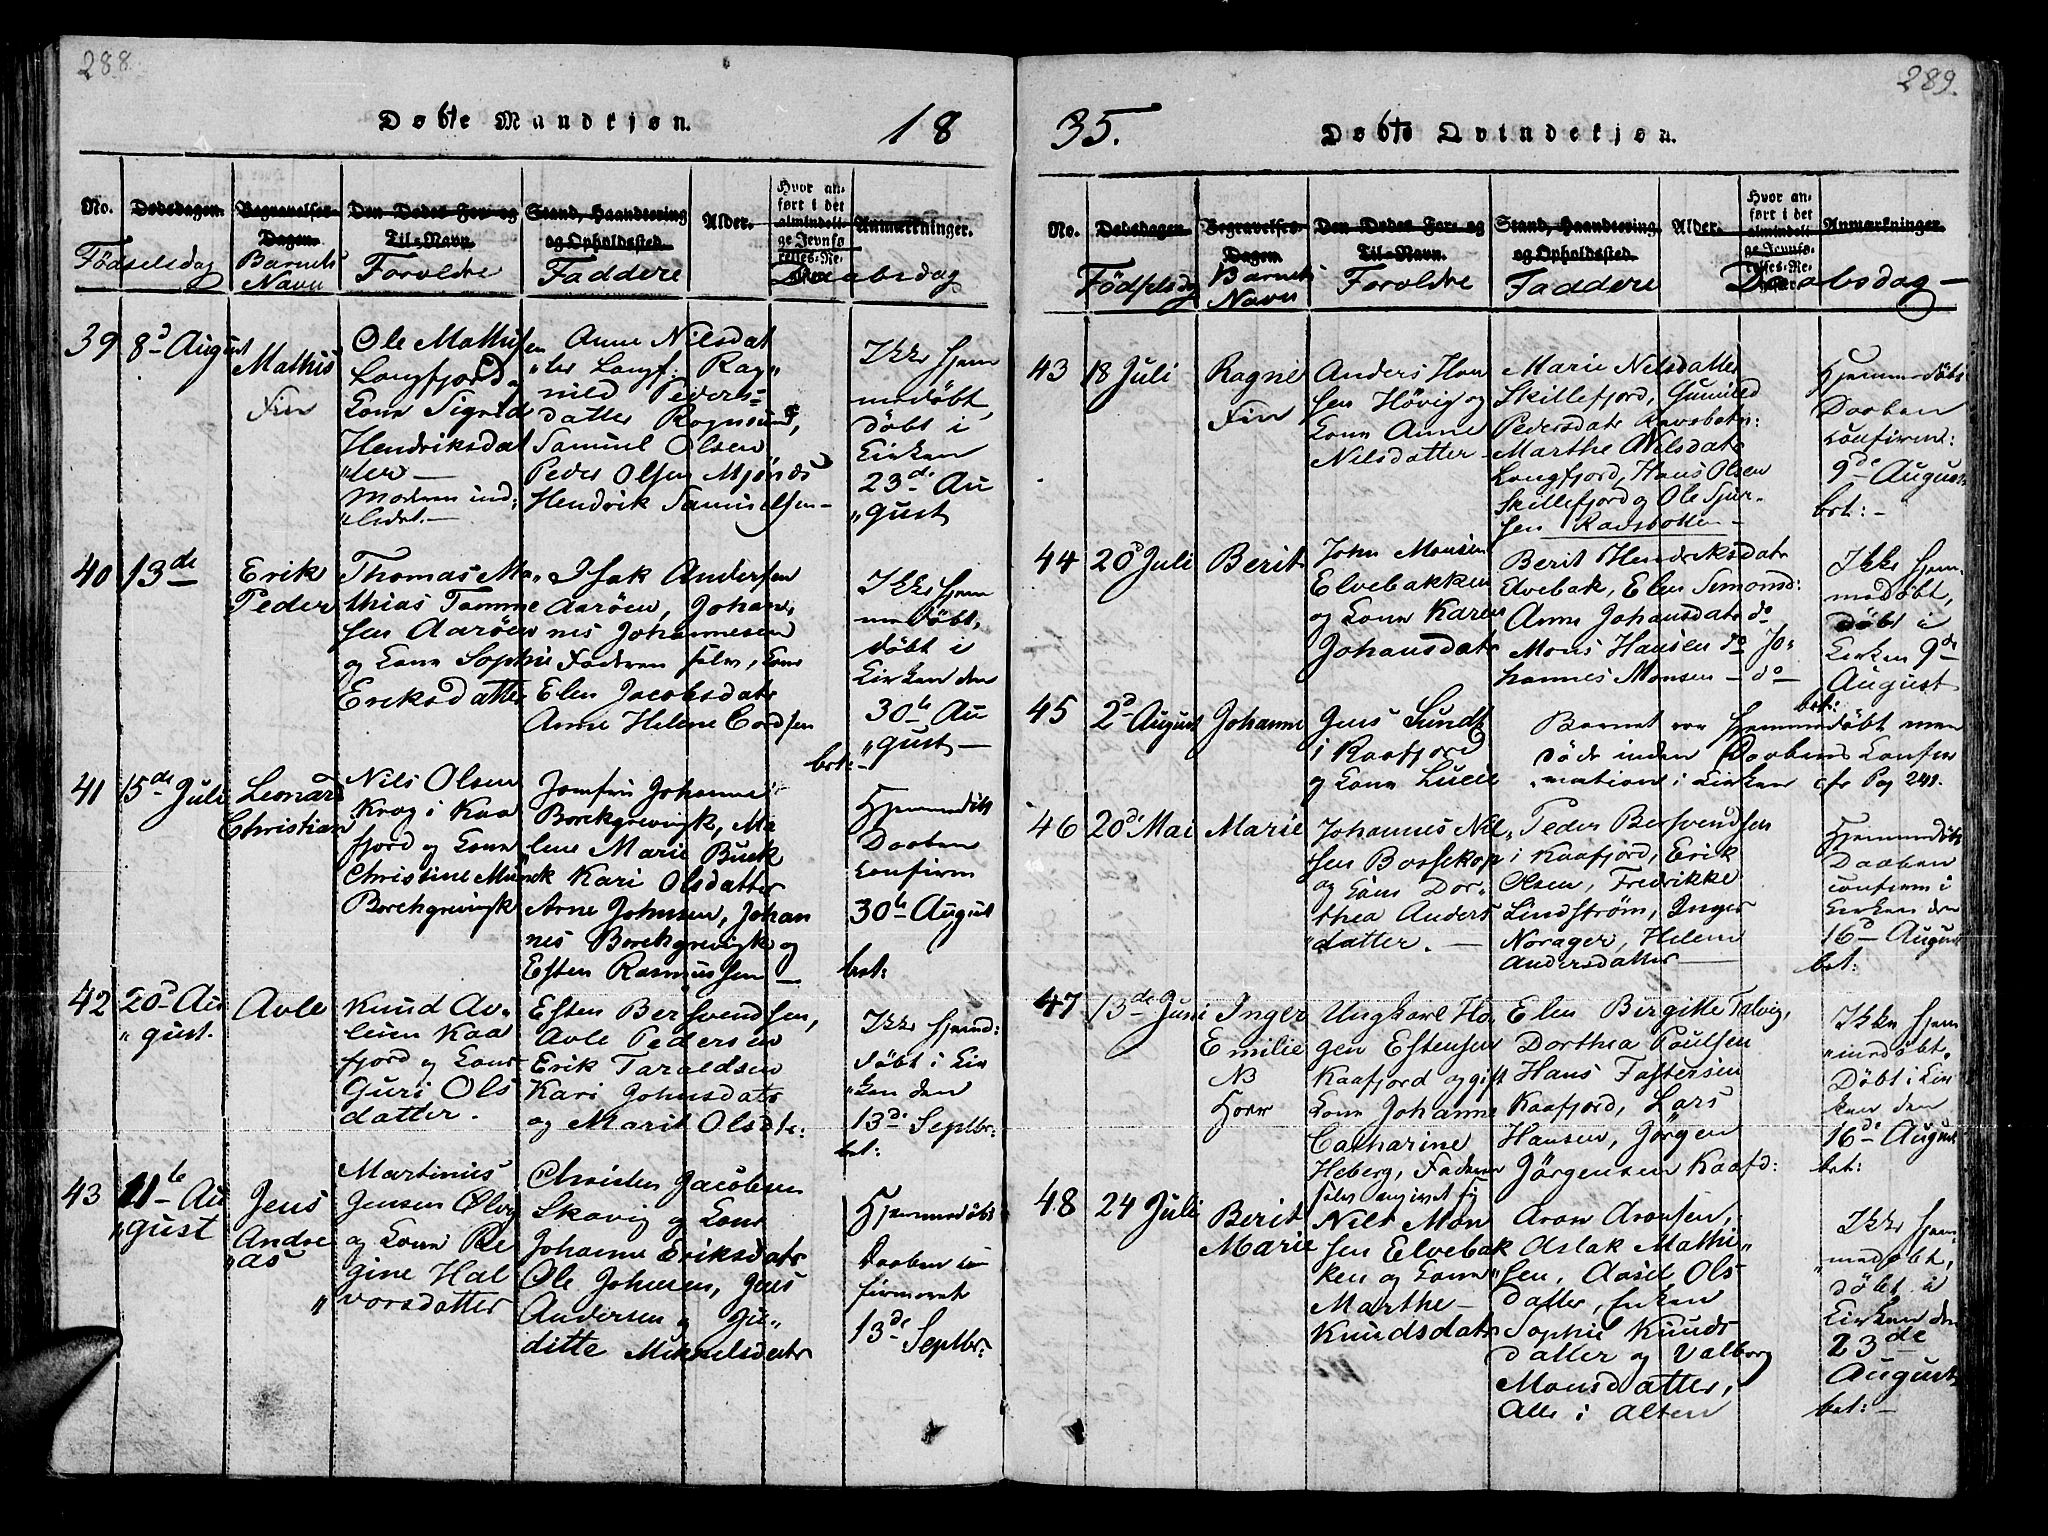 288.
Døbte Mandkjøn.
18
No.
Dødsdagen.
Begravelses-
Dagen.
Den Dødes For og
Til-Navn.
Stand, Haandtering
og Opholdssted.
Alder.
Hvor an-
ført i det
almindeli-
ge Jevnfø
relses-Re-
Anmærkninger.
Födselsdag
Barnets
Navn
Foroldre
Faddere
Daabsdag
39
8d August
Mathis
Fin
Ole Mathisen
Langfjord og
Kone Sigrid
Hendriksdat
"ter —
Moderen ind:
"ledet. —
Anne Nilsdat
"ter Langf: Rag"
nild Peders=
datter Rognsund,
Samuel Olsen
Peder Olsen Mjönæs
Hendrik Samuelsen —
Ikke hjem
medöbt,
döbt i
Kirken
23de Au
"gust
40
13de
Erik
Peder
Thomas Ma"
thias Tomme
sen Aaröen
og Kone Sophie
Eriksdatter
Isak Andersen
Aaröen, Johan"
nes Johannesen
Faderen selv, Kone
Elen Jacobsdatr
Anne Helene Cordsen
Ikke hjem
medöbt,
döbt i
Kirken den
30te Au
"gust —
bet: —
41
15de Juli
Leonard
Christian
Nils Olsen
Krog i Kaa
fjord og Kone
Christine Munk
Borchgrevingk
Jomfru Johanne
Borchgrevingk, Ma
lene Marie Buck
Kari Olsdatter
Arne Johnsen, Johan
nes Borchgrevingk og
Esten Rasmussen —
Hjemmedöbt
Daaben
Confirm
30te August
bet:
42
20d Au
"gust.
Avle
Knud Av"
lesen Kaa
fjord og Kone
Guri Ols
datter.
Esten Bersvendsen,
Avle Pedersen
Erik Taraldsen
Kari Johnsdatr
og Marit Olsdtr:
Ikke hjemd:
döbt i Kir
"ken den
13de Septbr:
bet:
43
11te Au
"gust
Jens
Andre
"as
Martinus
Jensen Ølvig
og Kone Re
gine Hal
" vorsdatter
Christen Jacobsen
Skavig og Kone
Johanne Eriksdatr
Ole Johnsen, Jens
Andersen og Ju"
ditte Mikkelsdatr
Hjemmedöbt
Daaben con
firmeret
13de Septbr:
289.
35.
Døbte Qvindekjøn.
No.
Dødsdagen.
Begravelses-
Dagen.
Den Dødes For- og
Til-Navn.
Stand, Haandtering
og Opholdssted.
Alder.
Hvor an-
ført i det
almindeli-
ge Jevnfø-
relses-Re-
Anmærkninger.
Födselsdag
Barnets
Navn
Foroldre
Faddere
Daabsdag —
43
18 Juli
Ragne
Fin
Anders Han
sen Hövig og
Kone Anne
Nilsdatter —
Marie Nilsdatter
Skillefjord, Gunild
Pedersdatr Ravsbotn:
Marthe Nilsdatr
Langfjord, Hans Olsen
Skillefjord og Ole Sjur"
sen Ravsbotten —
Hjemmedöbt
Daaben
confirm:
9de August
bet: —
44
20d Juli
Berit
John Monsen
Elvebakken
og Kone Karen
Johansdatr
Berit Hendriksdatr
Elvebak, Elen Simonsd:
Anne Johansdatr do
Mons Hansen do Jo=
hannes Monsen — do —
Ikke hjem
medöbt,
döbt i
Kirken 9de
August
bet:
45
2d August
Johanne
Jens Sundt
i Kaafjord
og Kone Lucie
Barnet var hjemmedöbt men
döde inden Daabens Confir
"mation i Kirken cfr Pag 241.
46
20de Mai
Marie
Johannes Nil"
sen Bossekop
og Kone Dor"
thea Anders
"datter. —
Peder Bersvendsen
i Kaafjord, Erik
Olsen, Fredrikke
Lindström, Inger
Norager, Helene
Andersdatter —
Hjemmedöbt
Daaben
confirm i
Kirken den
16de August
bet:
47
13de Juni
Inger
Emilie
NB
Horr
Ungkarl Ha
gen Estensen
Kaafjord og gift
Kone Johanne
Catharine
Heberg, Faderen
selv angivet sig
Elen Birgitte Talvig,
Dorthea Poulsen
Hans Fastersen
Kaafjord, Lars
Hansen, Jörgen
Jörgensen Kaafd:
Ikke hjem
"medöbt.
Döbt i Kir
ken den
16de August
bet:
48
24 Juli
Berit
Marie
Nils Mon
sen Elvebak
ken og Kone
Marthe —
Knudsdatr
Aron Aronsen,
Aslak Mathi"
"sen, Aasel Ols
datter, Enken
Sophie Knuds
datter og Valborg
Monsdatter,
Alle i Alten
Ikke hjem
"medöbt,
döbt i
Kirken den
23de
August
bet: —